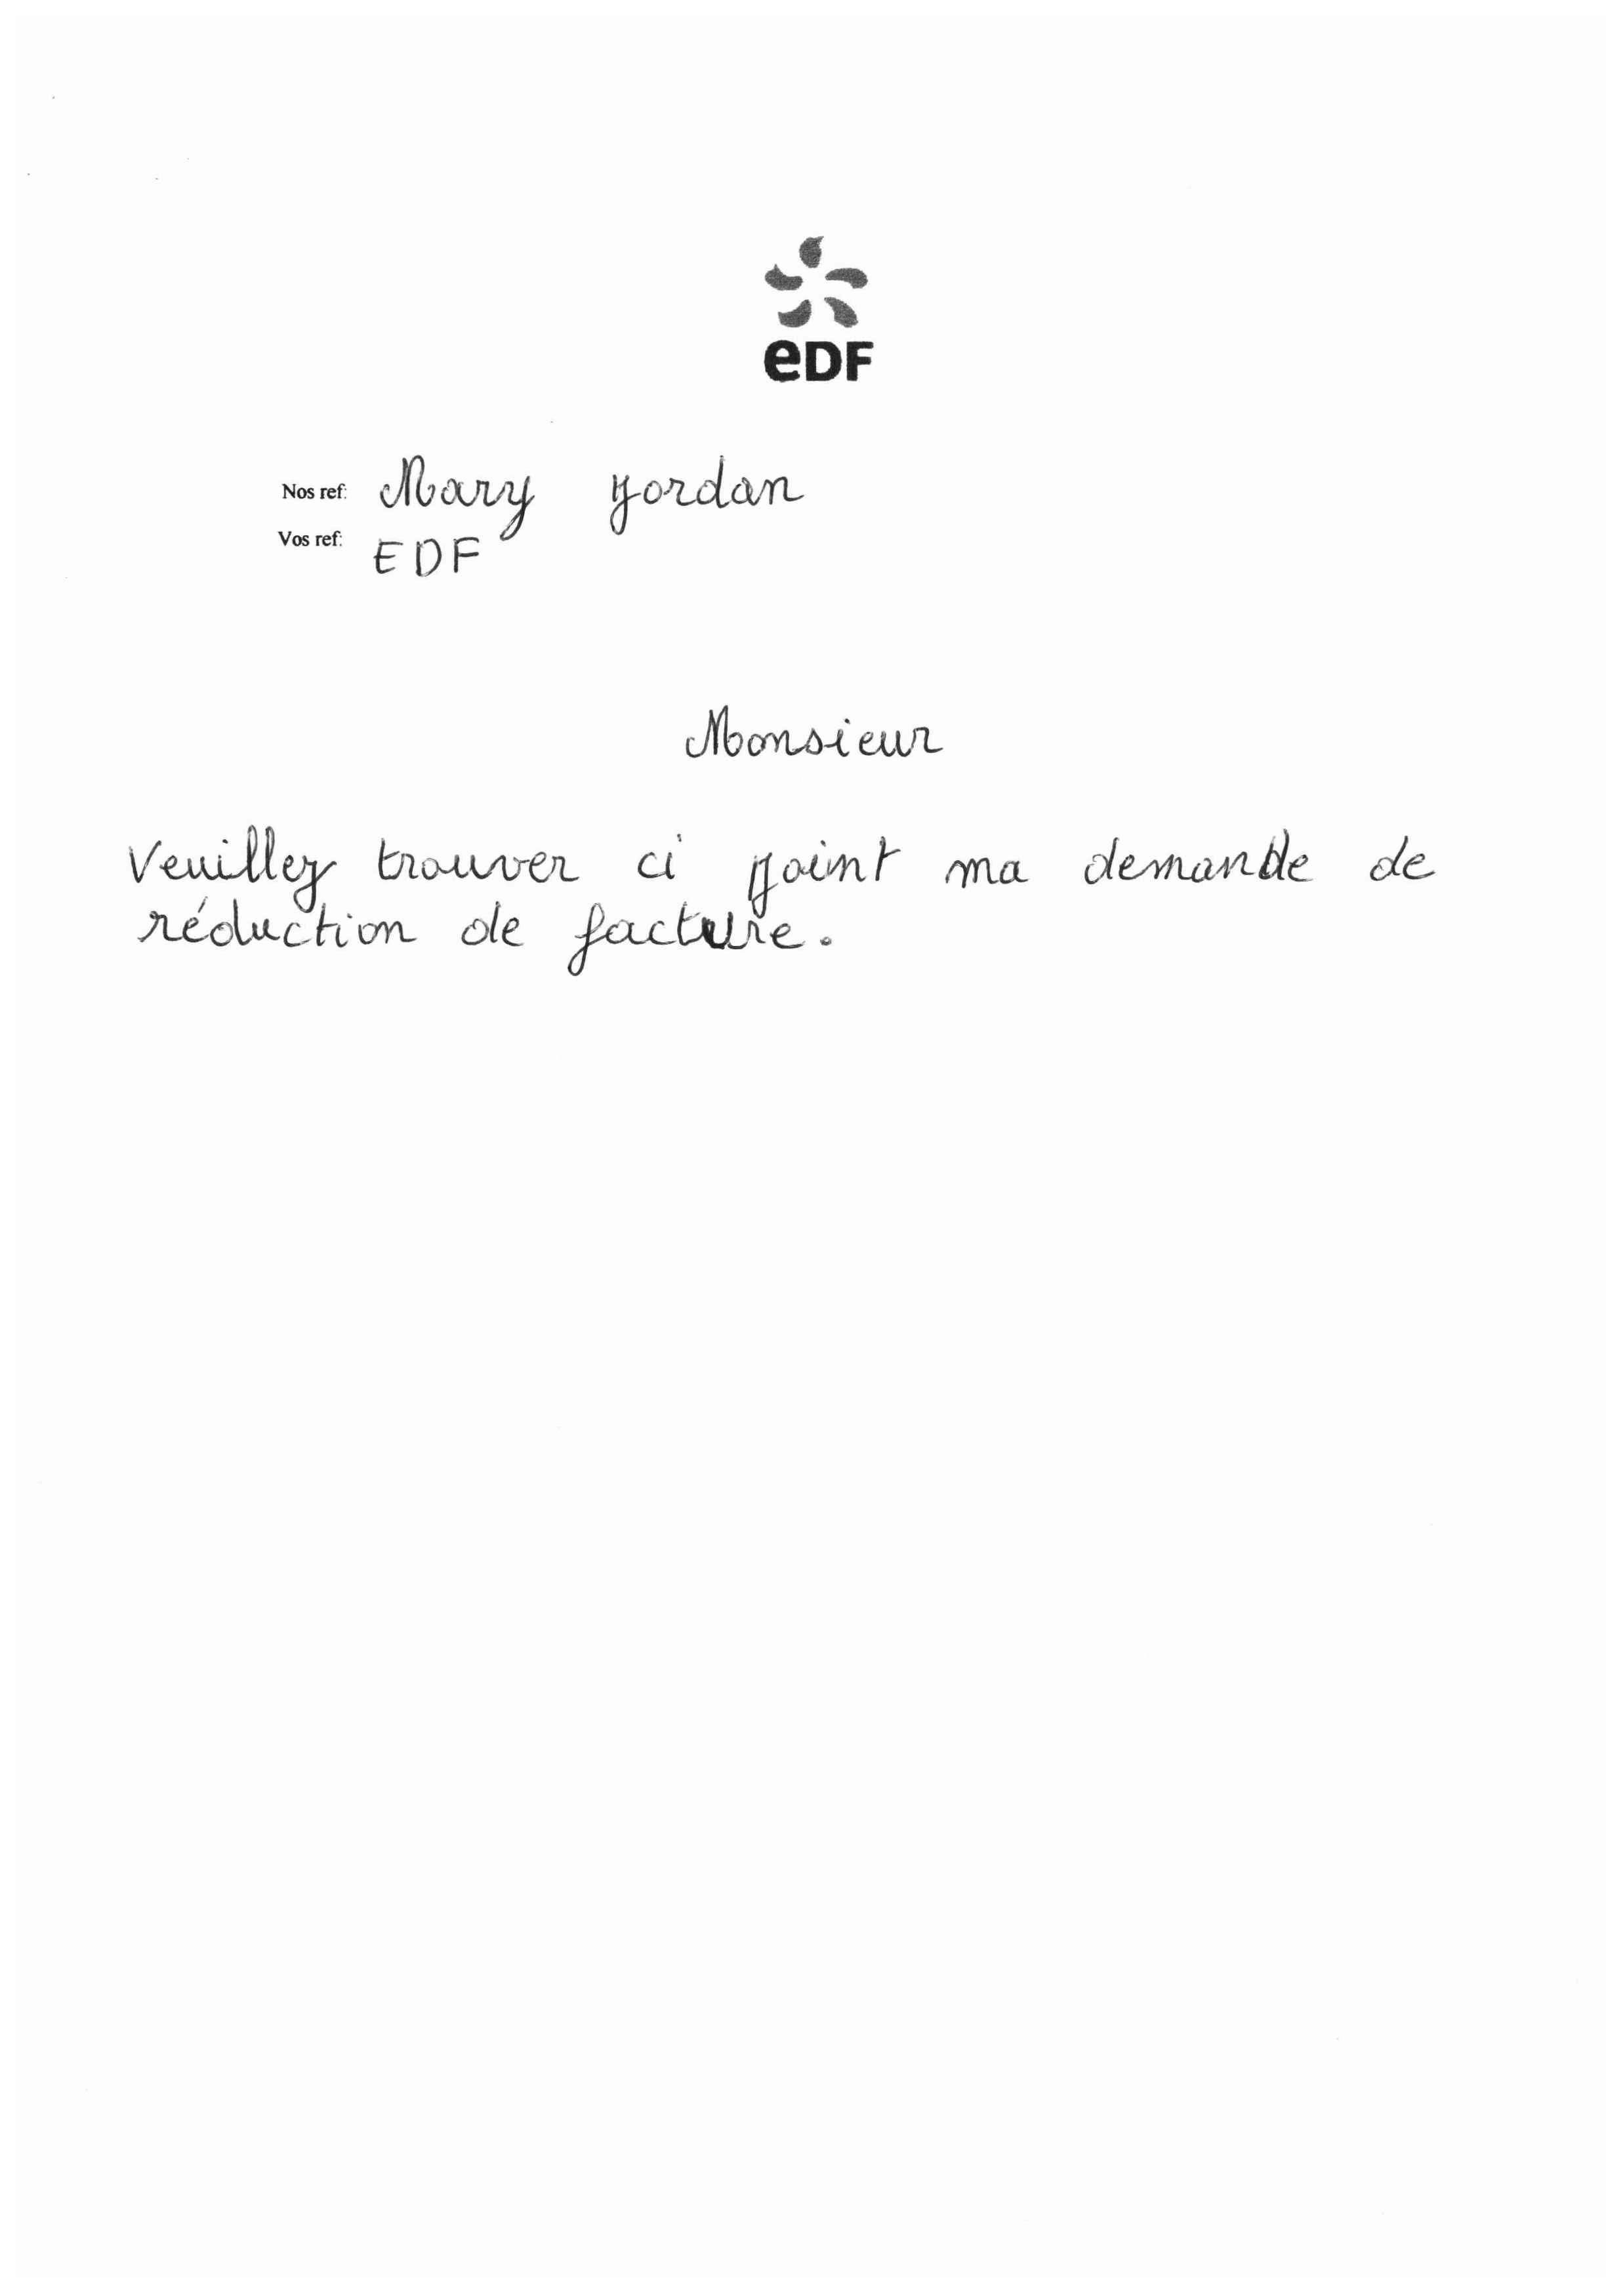 eDF
Nos ref: Mary Jordan
Vos ref: EDF
Monsieur
Veuillez trouver ci joint ma demande de
réduction de facture.